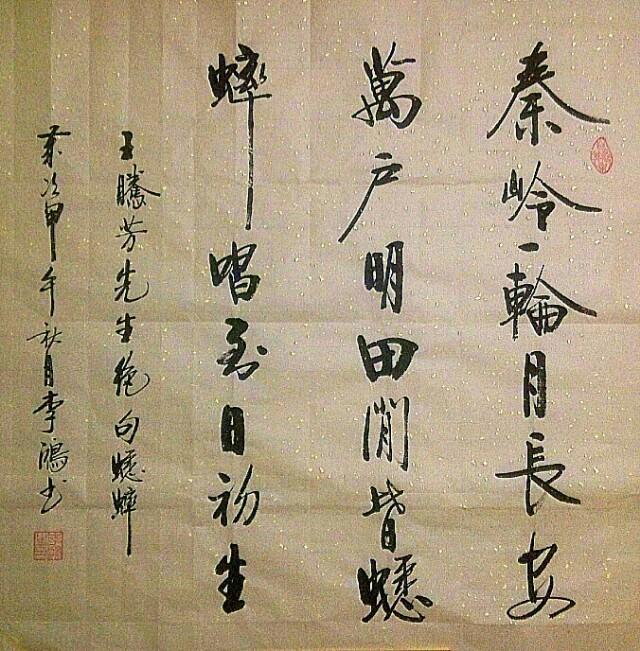 秦岭一輪月長安
萬户明田閒皆蟋
蟀唱到日初生
王騰芳先生絕句蟋蟀
歲次甲午秋月李鴻书